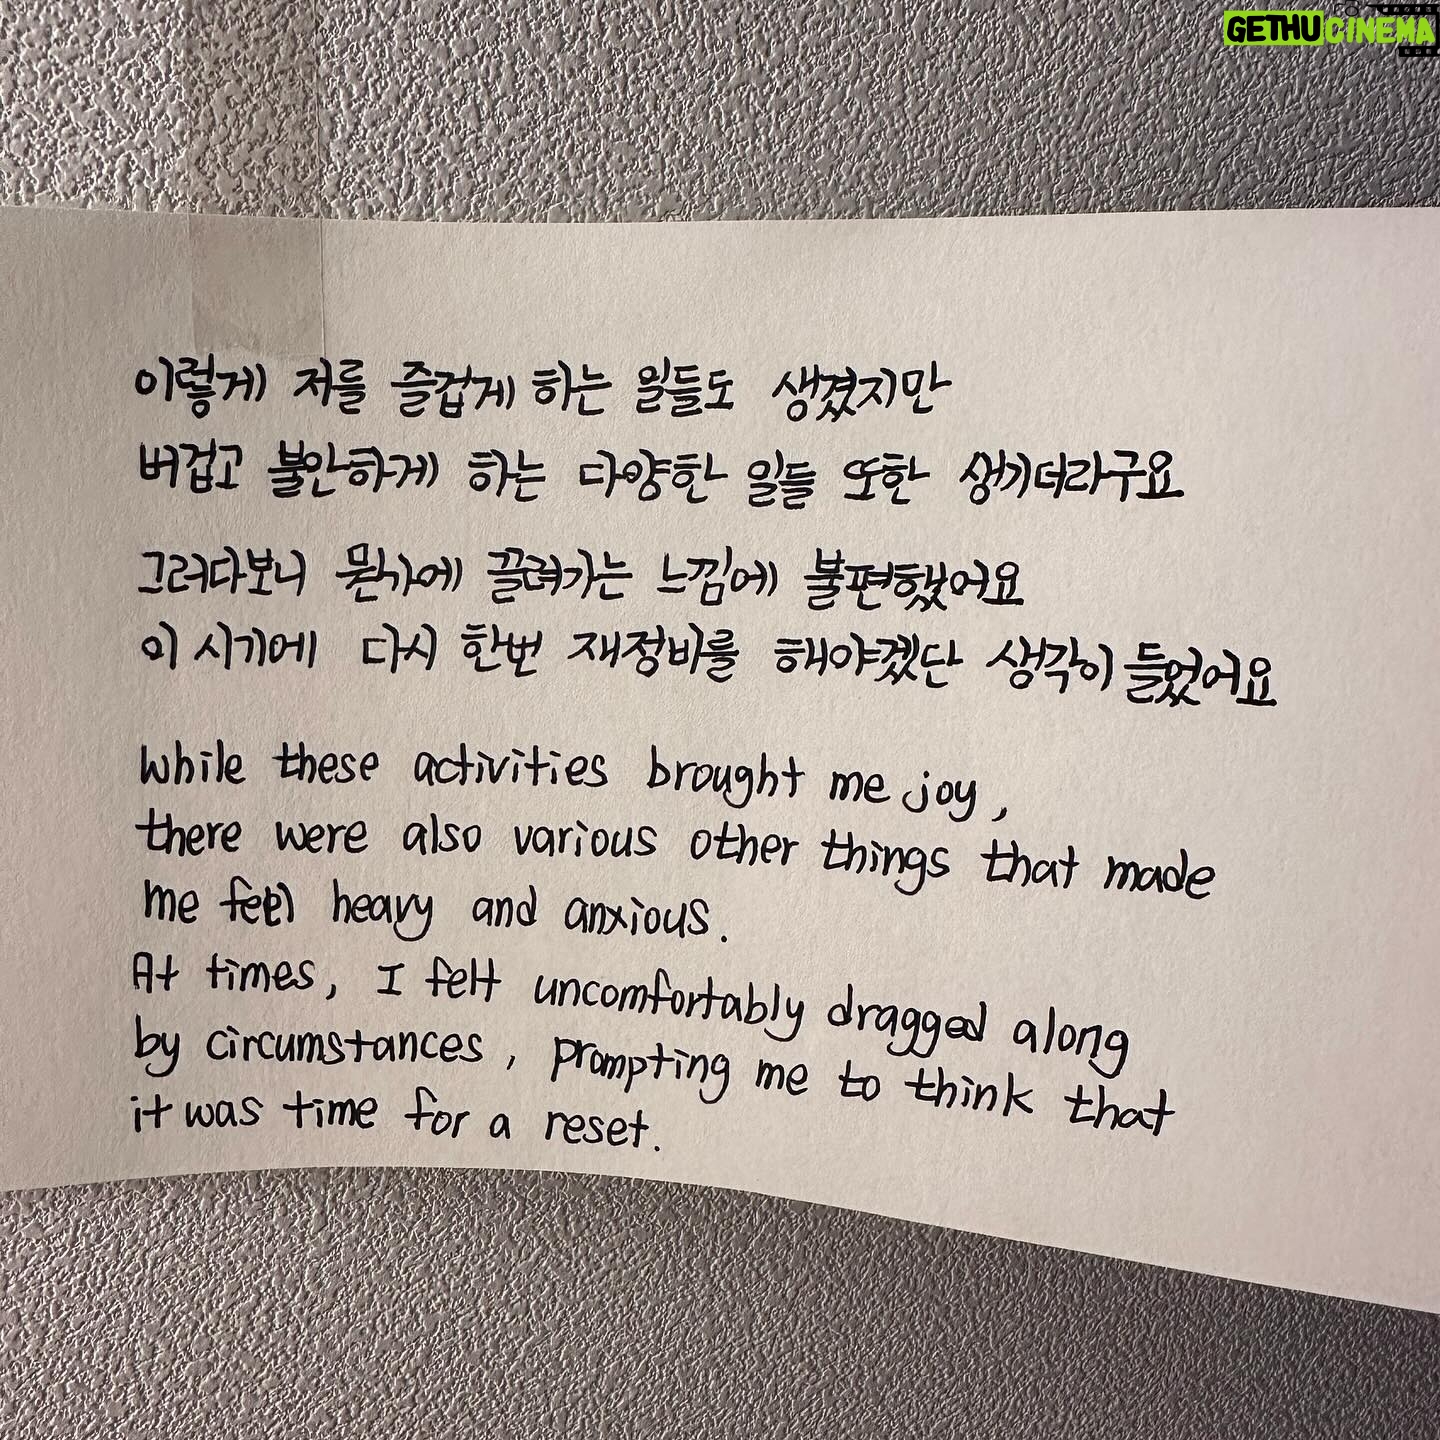 GETHUCINEMA
이렇게 저를 즐겁게 하는 일들도 생겼지만
버겁고 불안하게 하는 다양한 일들 또한 생기더라구요
그러다보니 뭔가에 끌려가는 느낌에 불편했어요
이 시기에 다시 한번 재정비를 해야겠단 생각이 들었어요
While these activities brought me joy,
there were also various other things that made
me feel heavy and anxious.
At times, I felt uncomfortably dragged along
by circumstances, prompting me to think that
it was time for a reset.